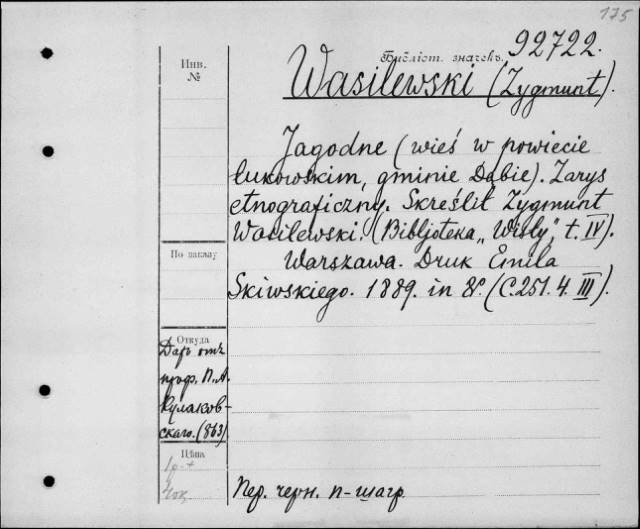 175
Библіот. значекъ 92722.
Инв.
№
Wasilewski (Zygmunt).
Jagodne (wieś w powiecie
łukowskim, gminie Dąbie). Zarys
etnograficzny. Skreślił Zygmunt
Wasilewski. (Bibljoteka „Wisły", t. IV).
По заказу
Warszawa. Druk Emila
Skiwskiego. 1889. in 8º. (C. 251. 4. III).
Откуда
Даръ отъ
проф. П. А.
Кулаков-
скаго. (863)
Цѣна
1р.
Пер. черн. п-шагр.